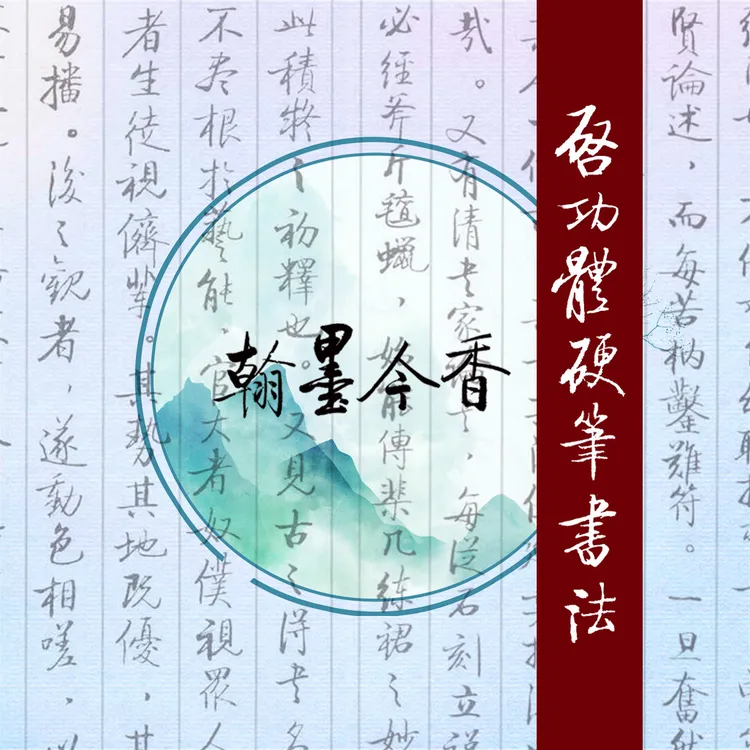 賢論述，而每苦枘鑿難符。一旦奮然
啓功體硬筆書法
哉。又有清書家，每從石刻立説
必經斧斤氈蠟，能傳棐几練裙之妙
此積疑之初釋也。又見古之得書名
不盡根於藝能，官大者奴僕視眾人
者生徒視儕輩。其勢其地既優，其
易播。後之觀者，遂動色相嗟，
翰墨今香